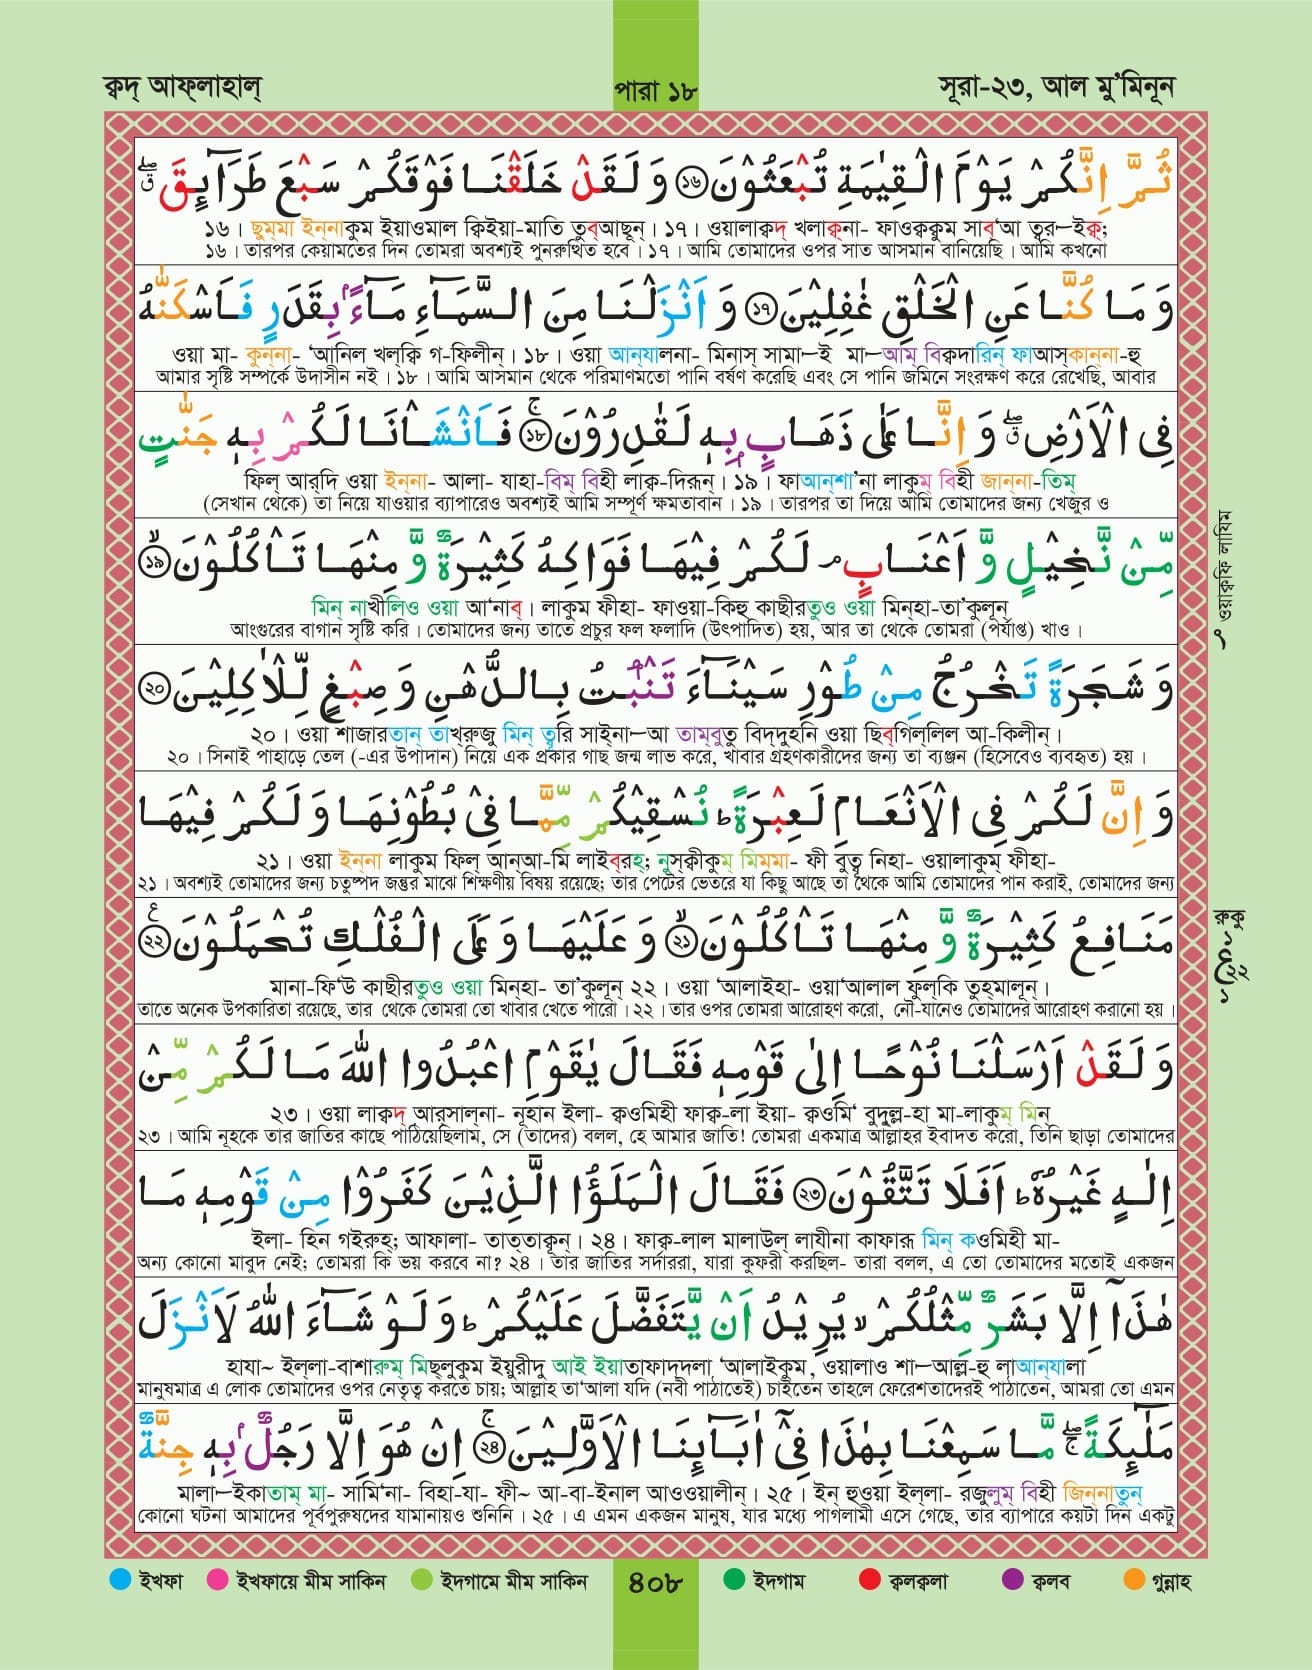 ক্বদ্ আফ্লাহাল্
পারা ১৮
সূরা-২৩, আল মু'মিনূন
ثُمَّ اِنَّكُمْ يَوْمَ الْقِيٰمَةِ تُبْعَثُوْنَ ⑯ وَ لَقَدْ خَلَقْنَا فَوْقَكُمْ سَبْعَ طَرَآئِقَ ۖق
১৬। ছুম্মা ইন্নাকুম ইয়াওমাল ক্বিইয়া-মাতি তুব্আছূন্। ১৭। ওয়ালাক্বদ্ খলাক্ব্না- ফাওক্বকুম সাব্'আ ত্বর—ইক্ব্;
১৬। তারপর কেয়ামতের দিন তোমরা অবশ্যই পুনরুত্থিত হবে। ১৭। আমি তোমাদের ওপর সাত আসমান বানিয়েছি। আমি কখনো
وَ مَا كُنَّا عَنِ الْخَلْقِ غٰفِلِيْنَ ⑰ وَ اَنْزَلْنَا مِنَ السَّمَآءِ مَآءًۢ بِقَدَرٍ فَاَسْكَنّٰهُ
ওয়া মা- কুন্না- 'আনিল খল্ক্বি গ-ফিলীন্। ১৮। ওয়া আন্যালনা- মিনাস্ সামা—ই মা—আম্ বিক্বদারিন্ ফাআস্কান্না-হু
আমার সৃষ্টি সম্পর্কে উদাসীন নই। ১৮। আমি আসমান থেকে পরিমাণমতো পানি বর্ষণ করেছি এবং সে পানি জমিনে সংরক্ষণ করে রেখেছি, আবার
فِى الْاَرْضِ ۖق وَ اِنَّا عَلٰى ذَهَابٍۭ بِهٖ لَقٰدِرُوْنَ ⑱ۚ فَاَنْشَاْنَا لَكُمْ بِهٖ جَنّٰتٍ
ফিল্ আর্দি ওয়া ইন্না- আলা- যাহা-বিম্ বিহী লাক্ব-দিরূন্। ১৯। ফাআন্শা'না লাকুম্ বিহী জান্না-তিম্
(সেখান থেকে) তা নিয়ে যাওয়ার ব্যাপারেও অবশ্যই আমি সম্পূর্ণ ক্ষমতাবান। ১৯। তারপর তা দিয়ে আমি তোমাদের জন্য খেজুর ও
مِّنْ نَّخِيْلٍ وَّ اَعْنَابٍ ۘ لَكُمْ فِيْهَا فَوَاكِهُ كَثِيْرَةٌ وَّ مِنْهَا تَاْكُلُوْنَ ⑲ۙ
মিন্ নাখীলিও ওয়া আ'নাব্। লাকুম ফীহা- ফাওয়া-কিহু কাছীরতুও ওয়া মিন্হা-তা'কুলূন্
আংগুরের বাগান সৃষ্টি করি। তোমাদের জন্য তাতে প্রচুর ফল ফলাদি (উৎপাদিত) হয়, আর তা থেকে তোমরা (পর্যাপ্ত) খাও।
ওয়াক্বফি লাযিম
وَ شَجَرَةً تَخْرُجُ مِنْ طُوْرِ سَيْنَآءَ تَنْۢبُتُ بِالدُّهْنِ وَ صِبْغٍ لِّلْاٰكِلِيْنَ ⑳
২০। ওয়া শাজারতান্ তাখ্রুজু মিন্ ত্বূরি সাইনা—আ তাম্বুতু বিদ্দুহনি ওয়া ছিব্গিল্লিল আ-কিলীন্।
২০। সিনাই পাহাড়ে তেল (-এর উপাদান) নিয়ে এক প্রকার গাছ জন্ম লাভ করে, খাবার গ্রহণকারীদের জন্য তা ব্যঞ্জন (হিসেবেও ব্যবহৃত) হয়।
وَ اِنَّ لَكُمْ فِى الْاَنْعَامِ لَعِبْرَةً ؕ نُسْقِيْكُمْ مِّمَّا فِىْ بُطُوْنِهَا وَ لَكُمْ فِيْهَا
২১। ওয়া ইন্না লাকুম ফিল্ আন্আ-মি লাইব্রহ্; নুস্ক্বীকুম্ মিম্মা- ফী বুতূ নিহা- ওয়ালাকুম্ ফীহা-
২১। অবশ্যই তোমাদের জন্য চতুষ্পদ জন্তুর মাঝে শিক্ষণীয় বিষয় রয়েছে; তার পেটের ভেতরে যা কিছু আছে তা থেকে আমি তোমাদের পান করাই, তোমাদের জন্য
مَنَافِعُ كَثِيْرَةٌ وَّ مِنْهَا تَاْكُلُوْنَ ㉑ۙ وَ عَلَيْهَا وَ عَلَى الْفُلْكِ تُحْمَلُوْنَ ㉒ع
মানা-ফি'উ কাছীরতুও ওয়া মিন্হা- তা'কুলূন্ ২২। ওয়া 'আলাইহা- ওয়া'আলাল ফুল্কি তুহ্মালূন্।
তাতে অনেক উপকারিতা রয়েছে, তার থেকে তোমরা তো খাবার খেতে পারো। ২২। তার ওপর তোমরা আরোহণ করো, নৌ-যানেও তোমাদের আরোহণ করানো হয়।
রুকু
وَ لَقَدْ اَرْسَلْنَا نُوْحًا اِلٰى قَوْمِهٖ فَقَالَ يٰقَوْمِ اعْبُدُوا اللّٰهَ مَا لَكُمْ مِّنْ
২৩। ওয়া লাক্বদ্ আর্সাল্না- নূহান ইলা- ক্বওমিহী ফাক্ব-লা ইয়া- ক্বওমি' বুদুল্ল-হা মা-লাকুম্ মিন্
২৩। আমি নূহকে তার জাতির কাছে পাঠিয়েছিলাম, সে (তাদের) বলল, হে আমার জাতি! তোমরা একমাত্র আল্লাহর ইবাদত করো, তিনি ছাড়া তোমাদের
اِلٰهٍ غَيْرُهٗ ؕ اَفَلَا تَتَّقُوْنَ ㉓ فَقَالَ الْمَلَؤُا الَّذِيْنَ كَفَرُوْا مِنْ قَوْمِهٖ مَا
ইলা- হিন গইরুহ্; আফালা- তাত্তাক্বূন্। ২৪। ফাক্ব-লাল মালাউল্ লাযীনা কাফারূ মিন্ কওমিহী মা-
অন্য কোনো মাবুদ নেই; তোমরা কি ভয় করবে না? ২৪। তার জাতির সর্দাররা, যারা কুফরী করছিল- তারা বলল, এ তো তোমাদের মতোই একজন
هٰذَآ اِلَّا بَشَرٌ مِّثْلُكُمْ ۙ يُرِيْدُ اَنْ يَّتَفَضَّلَ عَلَيْكُمْ ؕ وَ لَوْ شَآءَ اللّٰهُ لَاَنْزَلَ
হাযা~ ইল্লা-বাশারুম্ মিছ্লুকুম ইয়ুরীদু আই ইয়াতাফাদদলা 'আলাইকুম, ওয়ালাও শা—আল্ল-হু লাআন্যালা
মানুষমাত্র এ লোক তোমাদের ওপর নেতৃত্ব করতে চায়; আল্লাহ তা'আলা যদি (নবী পাঠাতেই) চাইতেন তাহলে ফেরেশতাদেরই পাঠাতেন, আমরা তো এমন
مَلٰٓئِكَةً ۖۚ مَّا سَمِعْنَا بِهٰذَا فِىْٓ اٰبَآئِنَا الْاَوَّلِيْنَ ㉔ۚ اِنْ هُوَ اِلَّا رَجُلٌۢ بِهٖ جِنَّةٌ
মালা—ইকাতাম্ মা- সামি'না- বিহা-যা- ফী~ আ-বা-ইনাল আওওয়ালীন্। ২৫। ইন্ হুওয়া ইল্লা- রজুলুম্ বিহী জিন্নাতুন্
কোনো ঘটনা আমাদের পূর্বপুরুষদের যামানায়ও শুনিনি। ২৫। এ এমন একজন মানুষ, যার মধ্যে পাগলামী এসে গেছে, তার ব্যাপারে কয়টা দিন একটু
ইখফা ইখফায়ে মীম সাকিন ইদগামে মীম সাকিন ৪০৮ ইদগাম ক্বলক্বলা ক্বলব গুন্নাহ